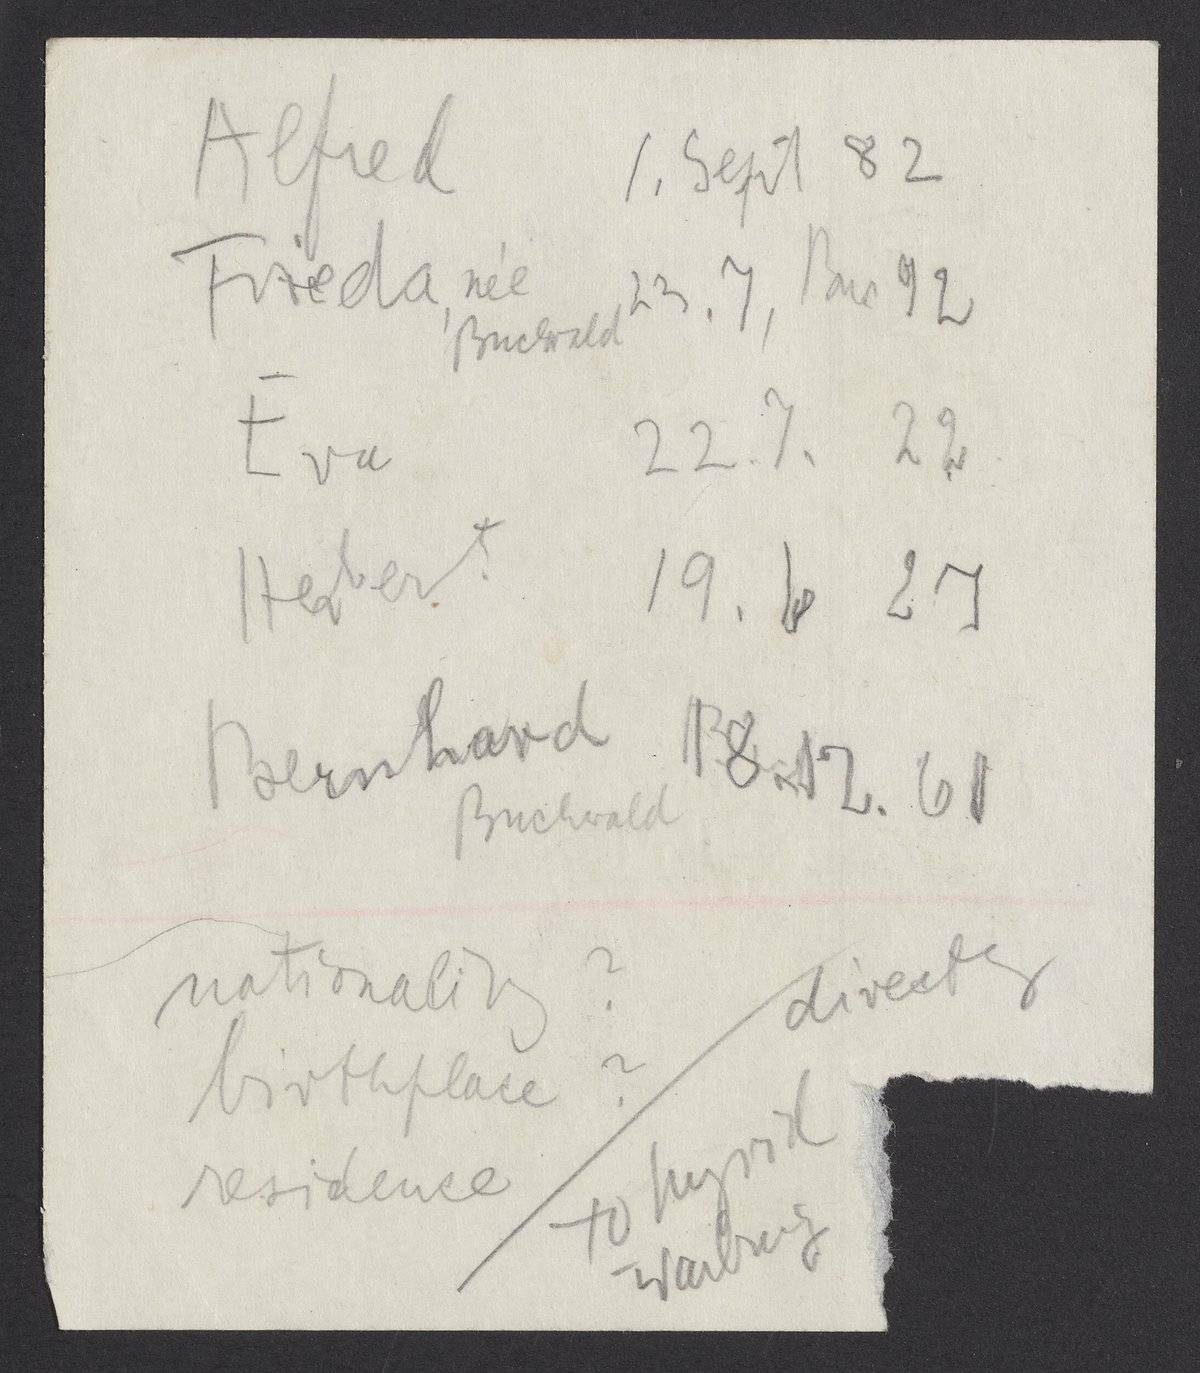 Alfred 1. Sept 82
Frieda, née 23.7, 92
Buchwald
Eva 22.7. 22
Herbert 19. 6 27
Bernhard 18.12. 61
Buchwald
nationality ? / directly
birthplace ?
residence
to Ingrid
Warburg